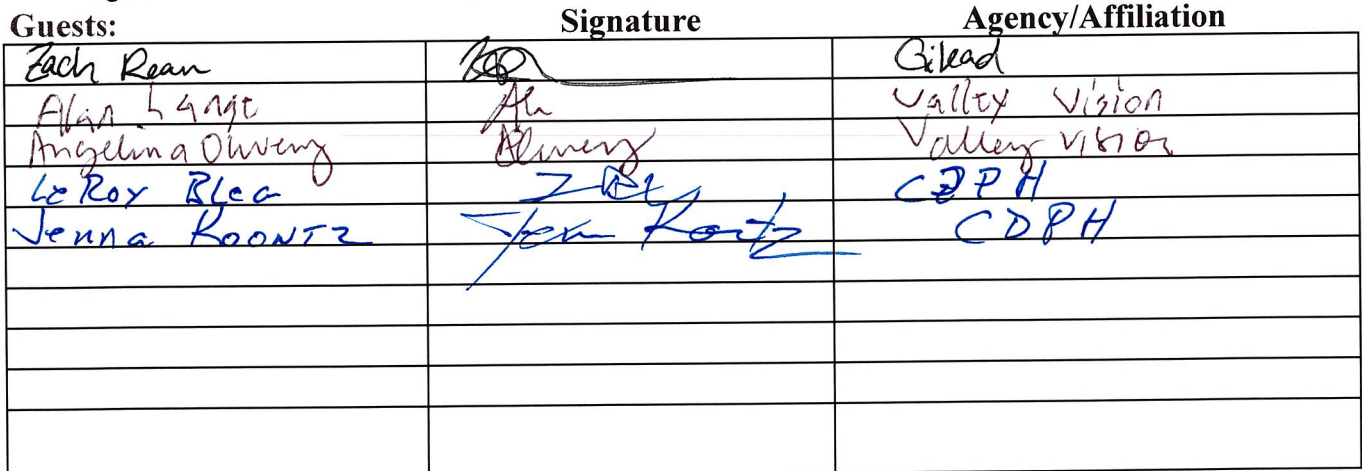 Guests: Signature Agency/Affiliation
Zach Rean Gilead
Alan Lange Valley Vision
Angelina Olivera Valley Vision
LeRoy Blea CDPH
Jenna KOONTZ Jenna Koontz CDPH